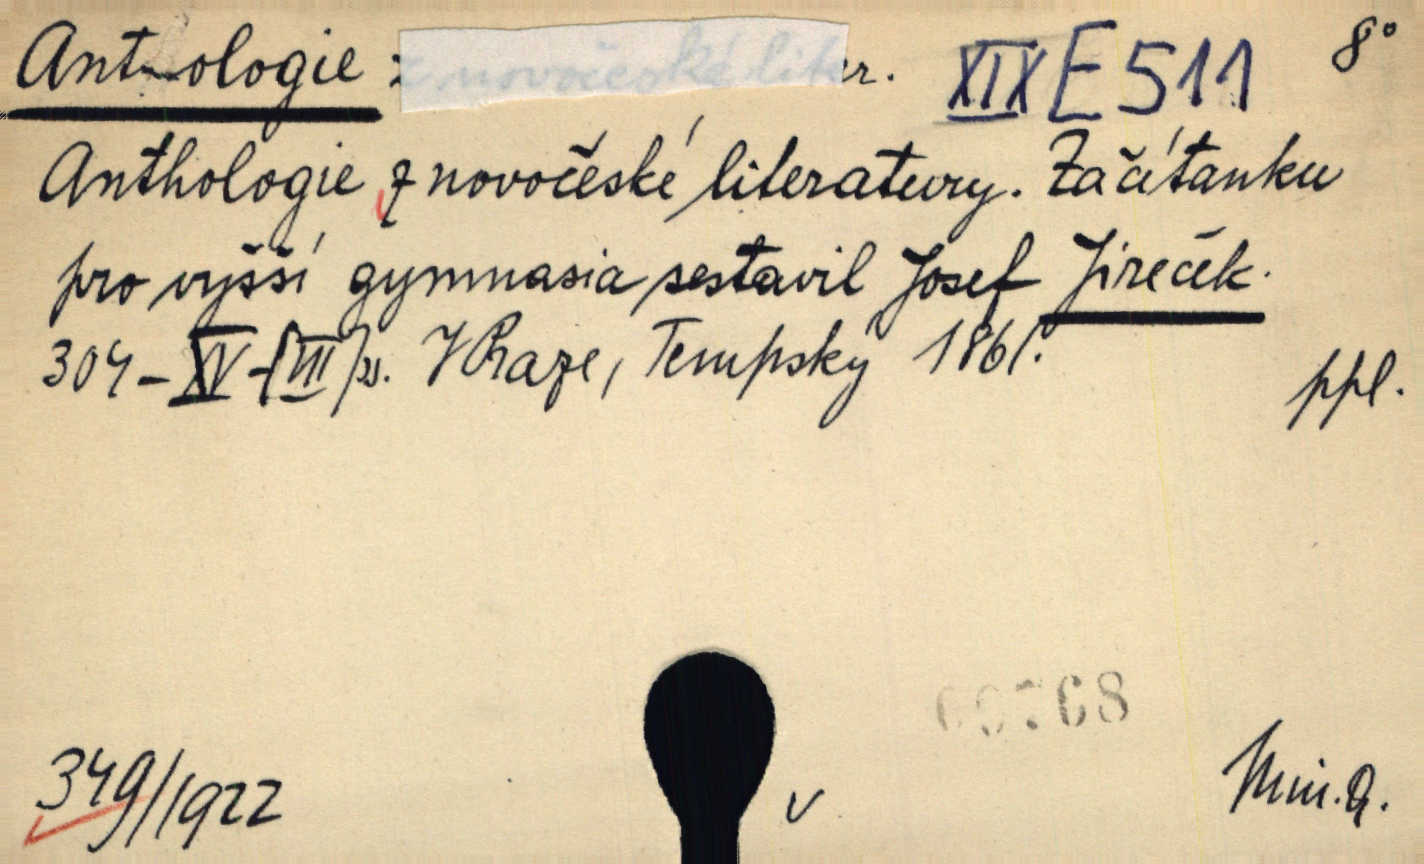 Antologie z novočeské liter. XIX E 511 8°
Anthologie z novočeské literatury. Začítanku
pro vyšší gymnasia sestavil Josef Jireček.
304-XV-(III)s. V Praze, Tempský 1861.
ppl.
349/1922